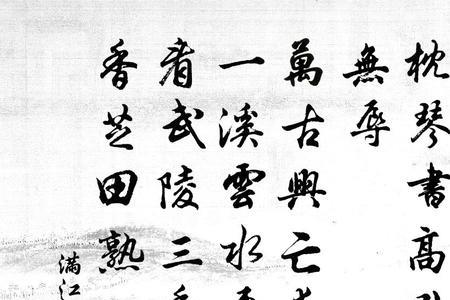 枕琴書高
無辱
萬古興亡
一溪雲水
看武陵三
香芝田熟
滿江